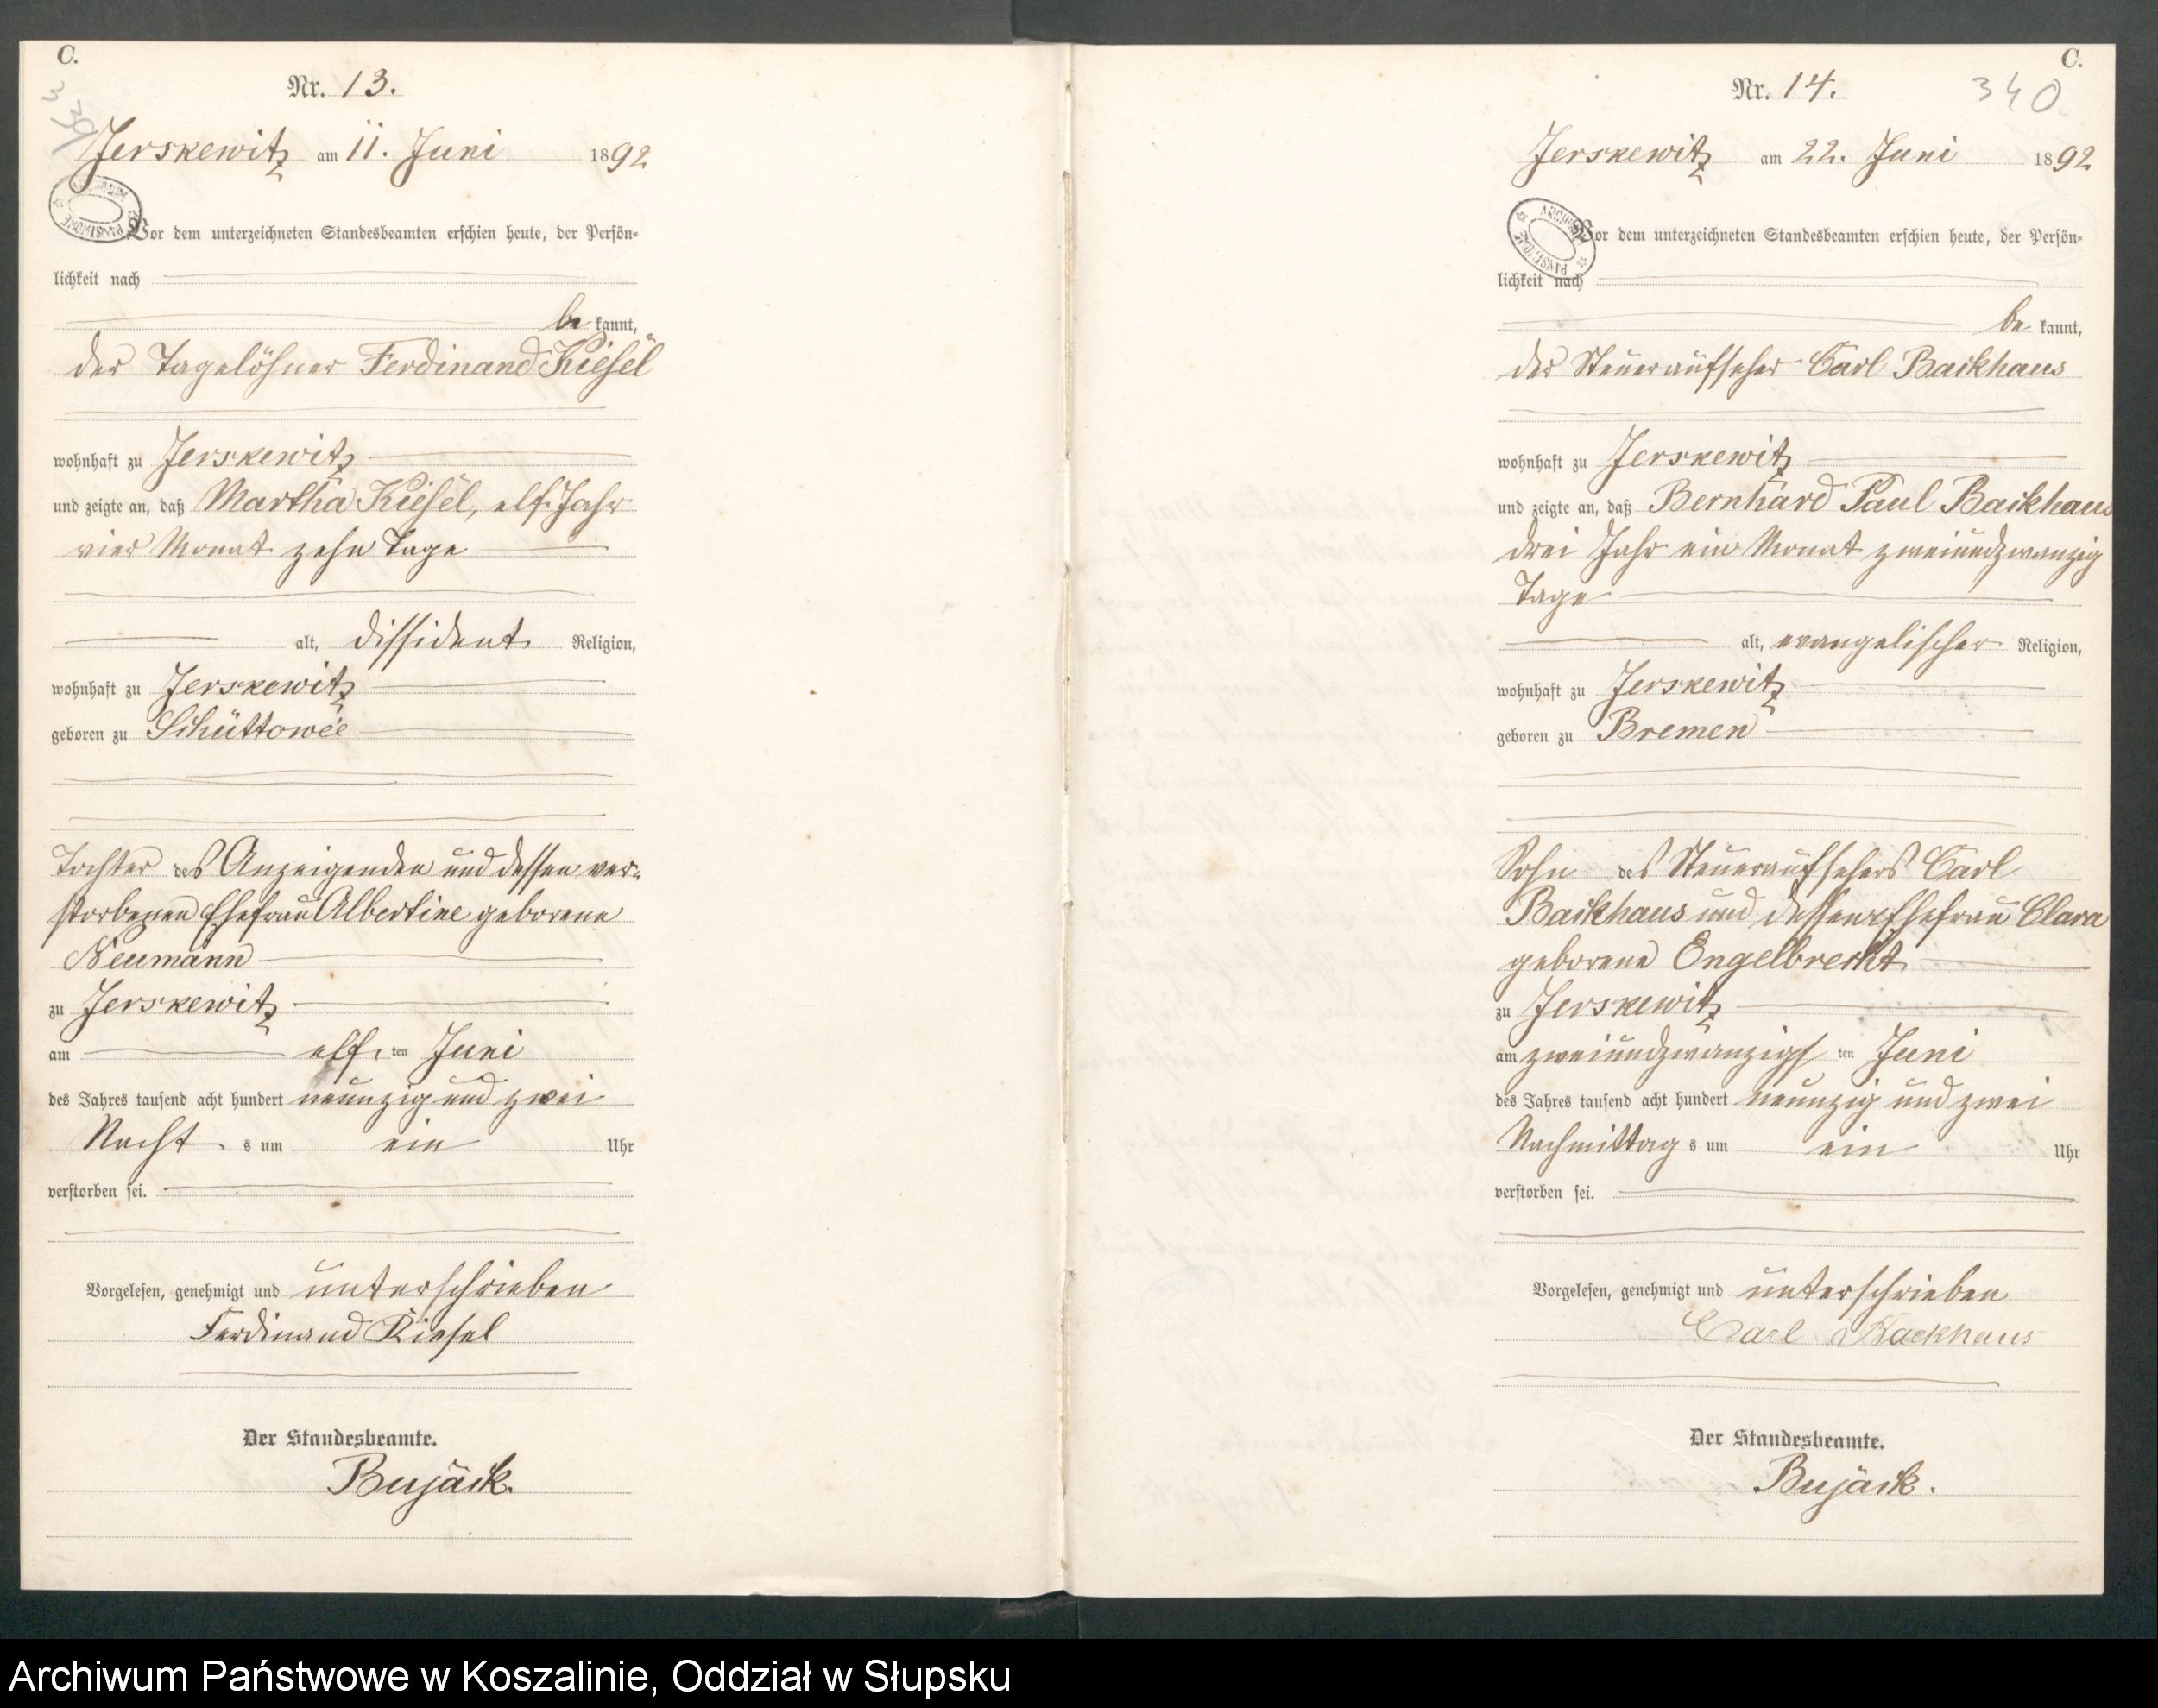 C.
339
Nr. 13.
Jerskewitz am 11. Juni 1892
ARCHIWUM PAŃSTWOWE
Vor dem unterzeichneten Standesbeamten erschien heute, der Persön-
lichkeit nach
be kannt,
der Tagelöhner Ferdinand Kiesel
wohnhaft zu Jerskewitz
und zeigte an, daß Martha Kiesel, elf Jahr
vier Monat zehn Tage
alt, dissident Religion,
wohnhaft zu Jerskewitz
geboren zu Schüttowee
Tochter des Anzeigenden und dessen ver-
storbenen Ehefrau Albertine geborene
Neumann
zu Jerskewitz
am elf ten Juni
des Jahres tausend acht hundert neunzig und zwei
Nacht s um ein Uhr
verstorben sei.
Vorgelesen, genehmigt und unterschrieben
Ferdinand Kiesel
Der Standesbeamte.
Bujack.
C.
340
Nr. 14.
Jerskewitz am 22. Juni 1892
ARCHIWUM PAŃSTWOWE
Vor dem unterzeichneten Standesbeamten erschien heute, der Persön-
lichkeit nach
be kannt,
der Steueraufseher Carl Backhaus
wohnhaft zu Jerskewitz
und zeigte an, daß Bernhard Paul Backhaus
drei Jahr ein Monat zweiundzwanzig
Tage
alt, evangelischer Religion,
wohnhaft zu Jerskewitz
geboren zu Bremen
Sohn des Steueraufsehers Carl
Backhaus und dessen Ehefrau Clara
geborene Engelbrecht
zu Jerskewitz
am zweiundzwanzigs ten Juni
des Jahres tausend acht hundert neunzig und zwei
Nachmittag s um ein Uhr
verstorben sei.
Vorgelesen, genehmigt und unterschrieben
Carl Backhaus
Der Standesbeamte.
Bujack.
Archiwum Państwowe w Koszalinie, Oddział w Słupsku